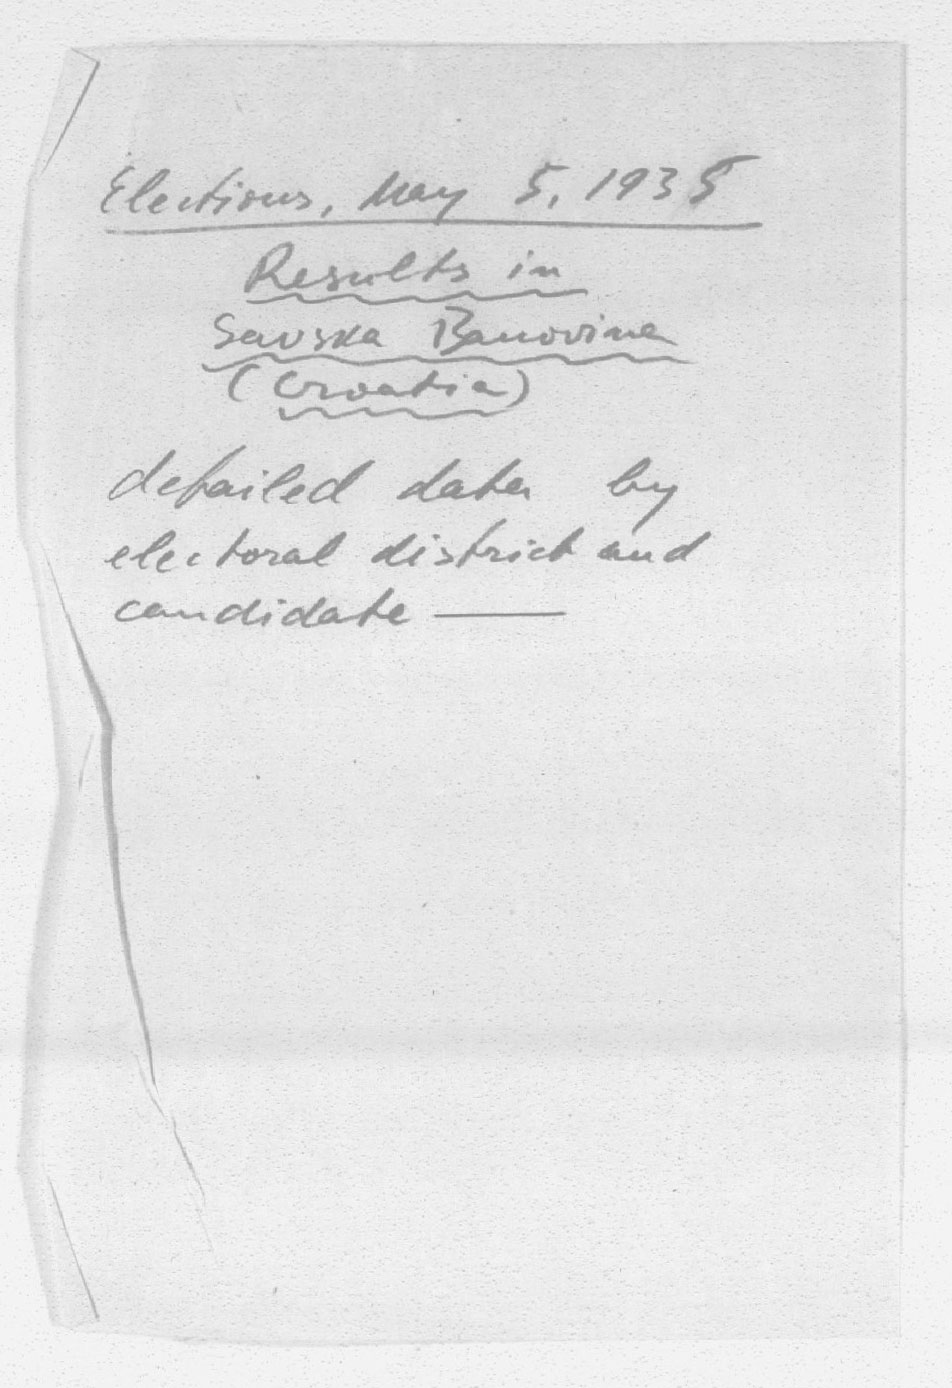 Elections, May 5, 1935
Results in
Savska Banovina
(Croatia)
detailed data by
electoral district and
candidate ——